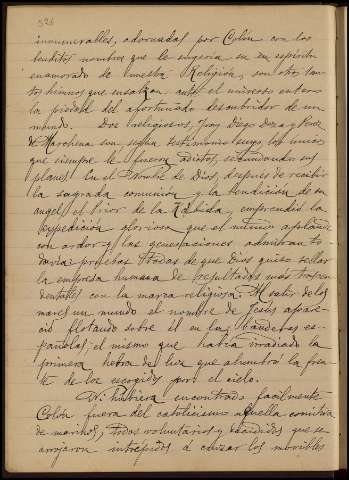 526
innumerables, adornadas por Colon con los
benditos nombres que le sugería su espíritu
enamorado de nuestra Religión, son otros tan-
tos himnos que ensalzan ante el universo entero
la piedad del afortunado descubridor de un
mundo. Dos religiosos, fray Diego Deza y Perez
de Marchena son, segun testimonio suyo, los unicos
que siempre le fueron adictos, secundando sus
planes. En el Nombre de Dios, despues de recibir
la sagrada comunión y la bendicion de su
angel el Prior de la Rábida, emprendió la
expedición gloriosa que el mundo aplaude
con ardor y las generaciones admiran to
davia; pruebas todas de que Dios quiso sellar
la empresa humana de resultados más trascen
dentales con la marca religiosa. Al salir de los
mares un mundo el nombre de Jesús apare-
ció flotando sobre él en las banderas es-
pañolas; el mismo que habia irradiado la
primera hebra de luz que alumbró la fren
te de los escogidos por el cielo.
Ni hubiera encontrado facilmente
Colón fuera del catolicismo aquella comitiva
de marinos, todos voluntarios y que se
arrojaron intrépidos á cruzar los movibles